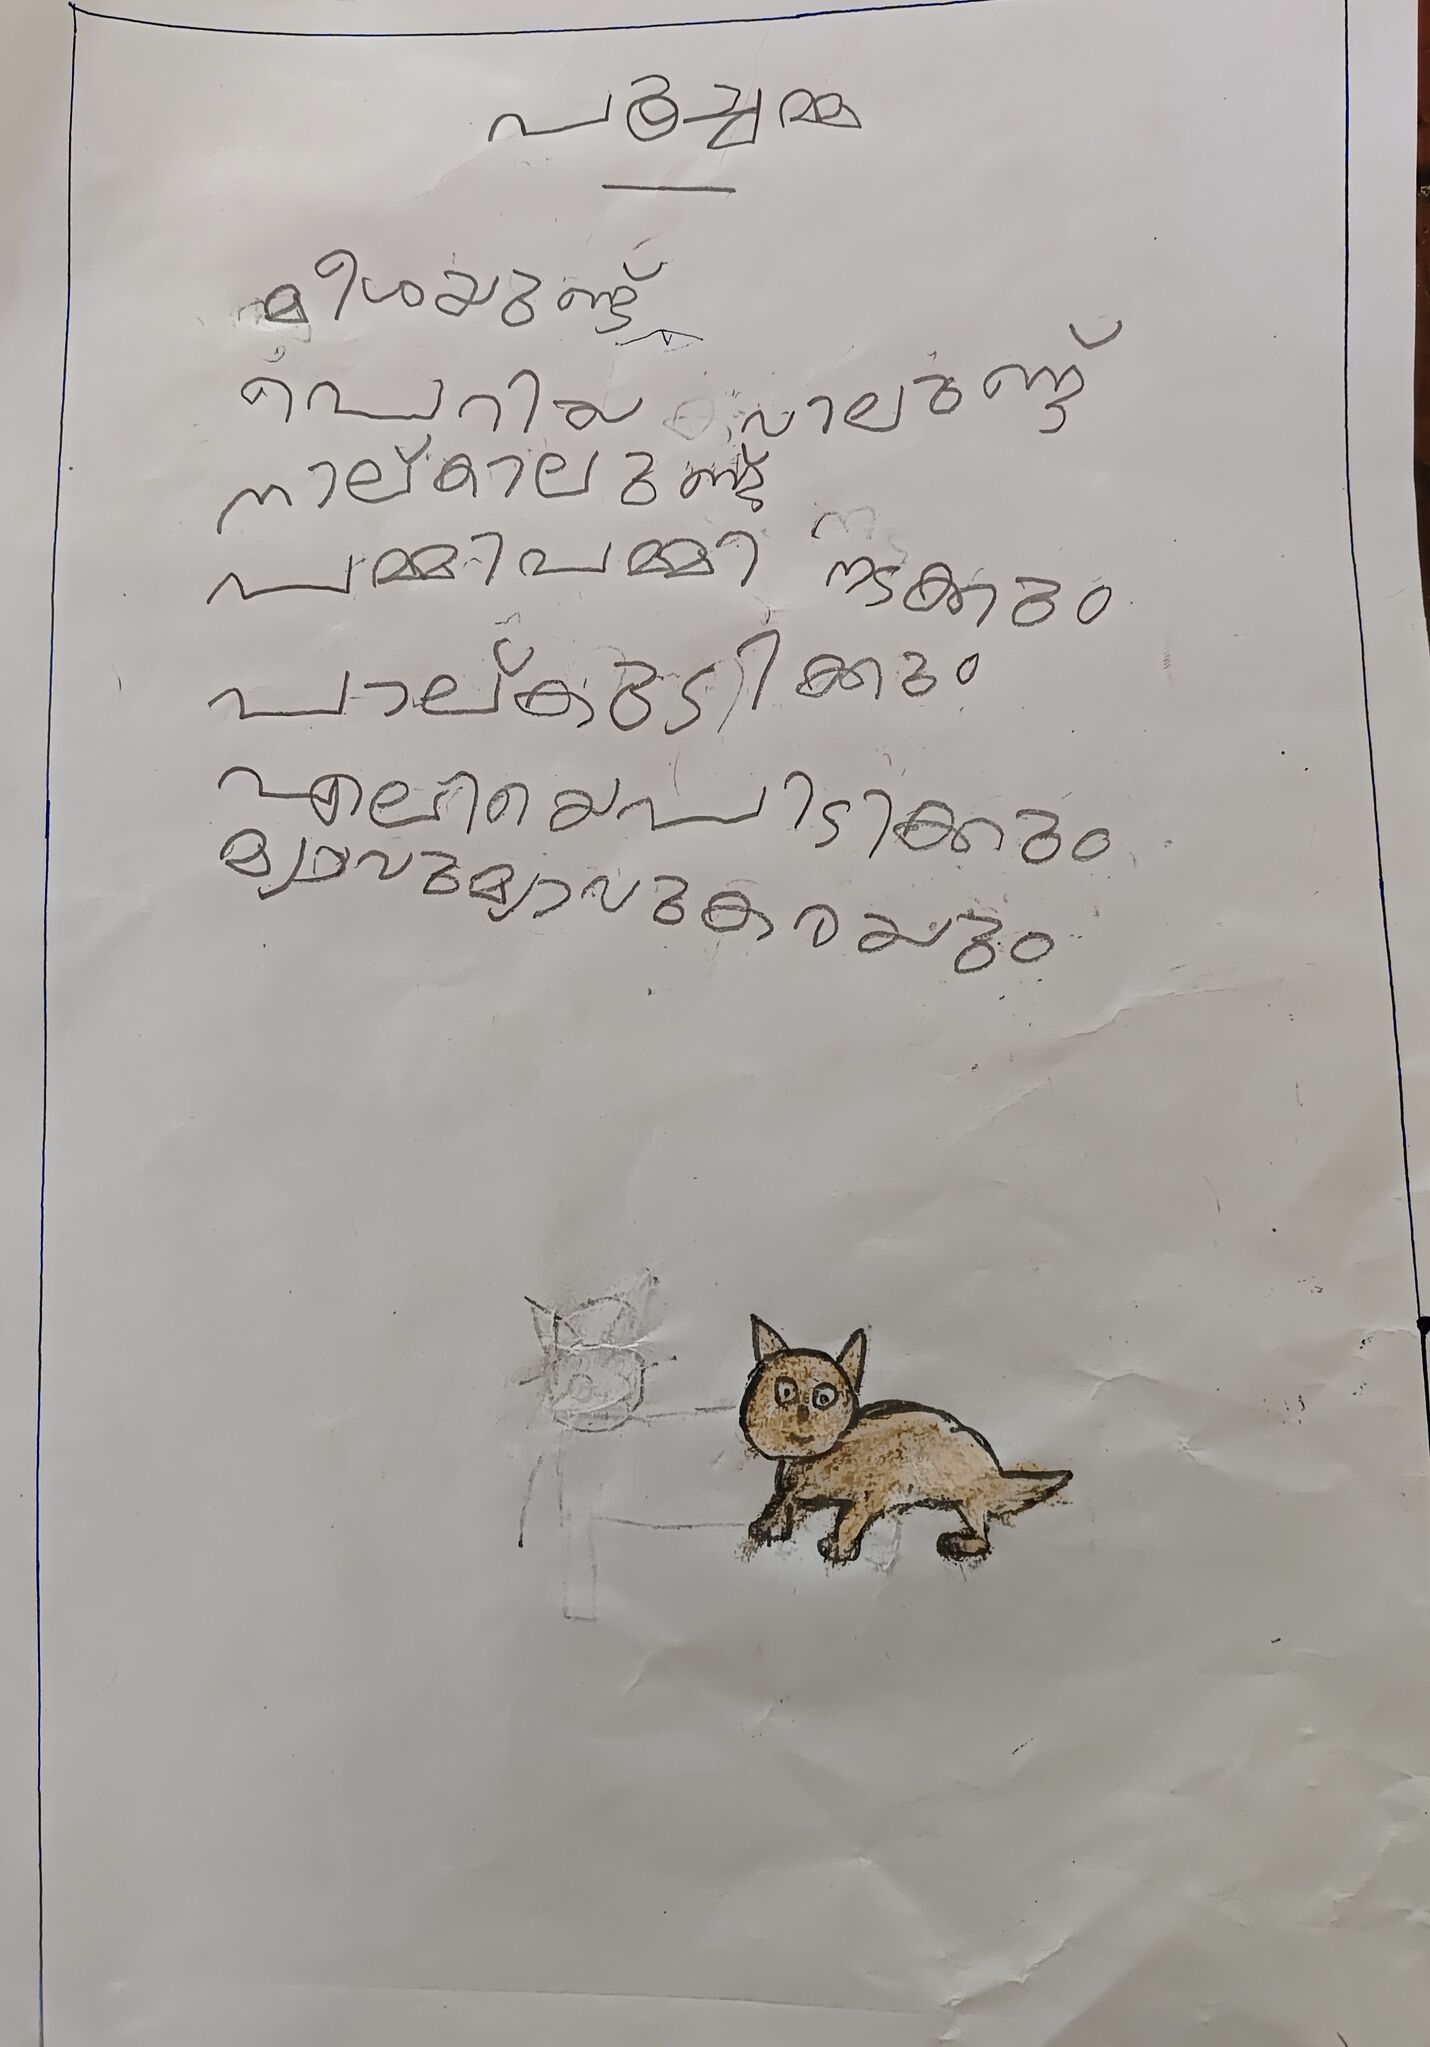 പൂച്ചമ്മ
മീശയുണ്ട്
ചെറിയ വാലുണ്ട്
നാല്കാലുണ്ട്
പമ്മിപമ്മി നടക്കും
പാല്കുടിക്കും
എലിയെപിടിക്കും
മ്യാവുമ്യാവുകരയും